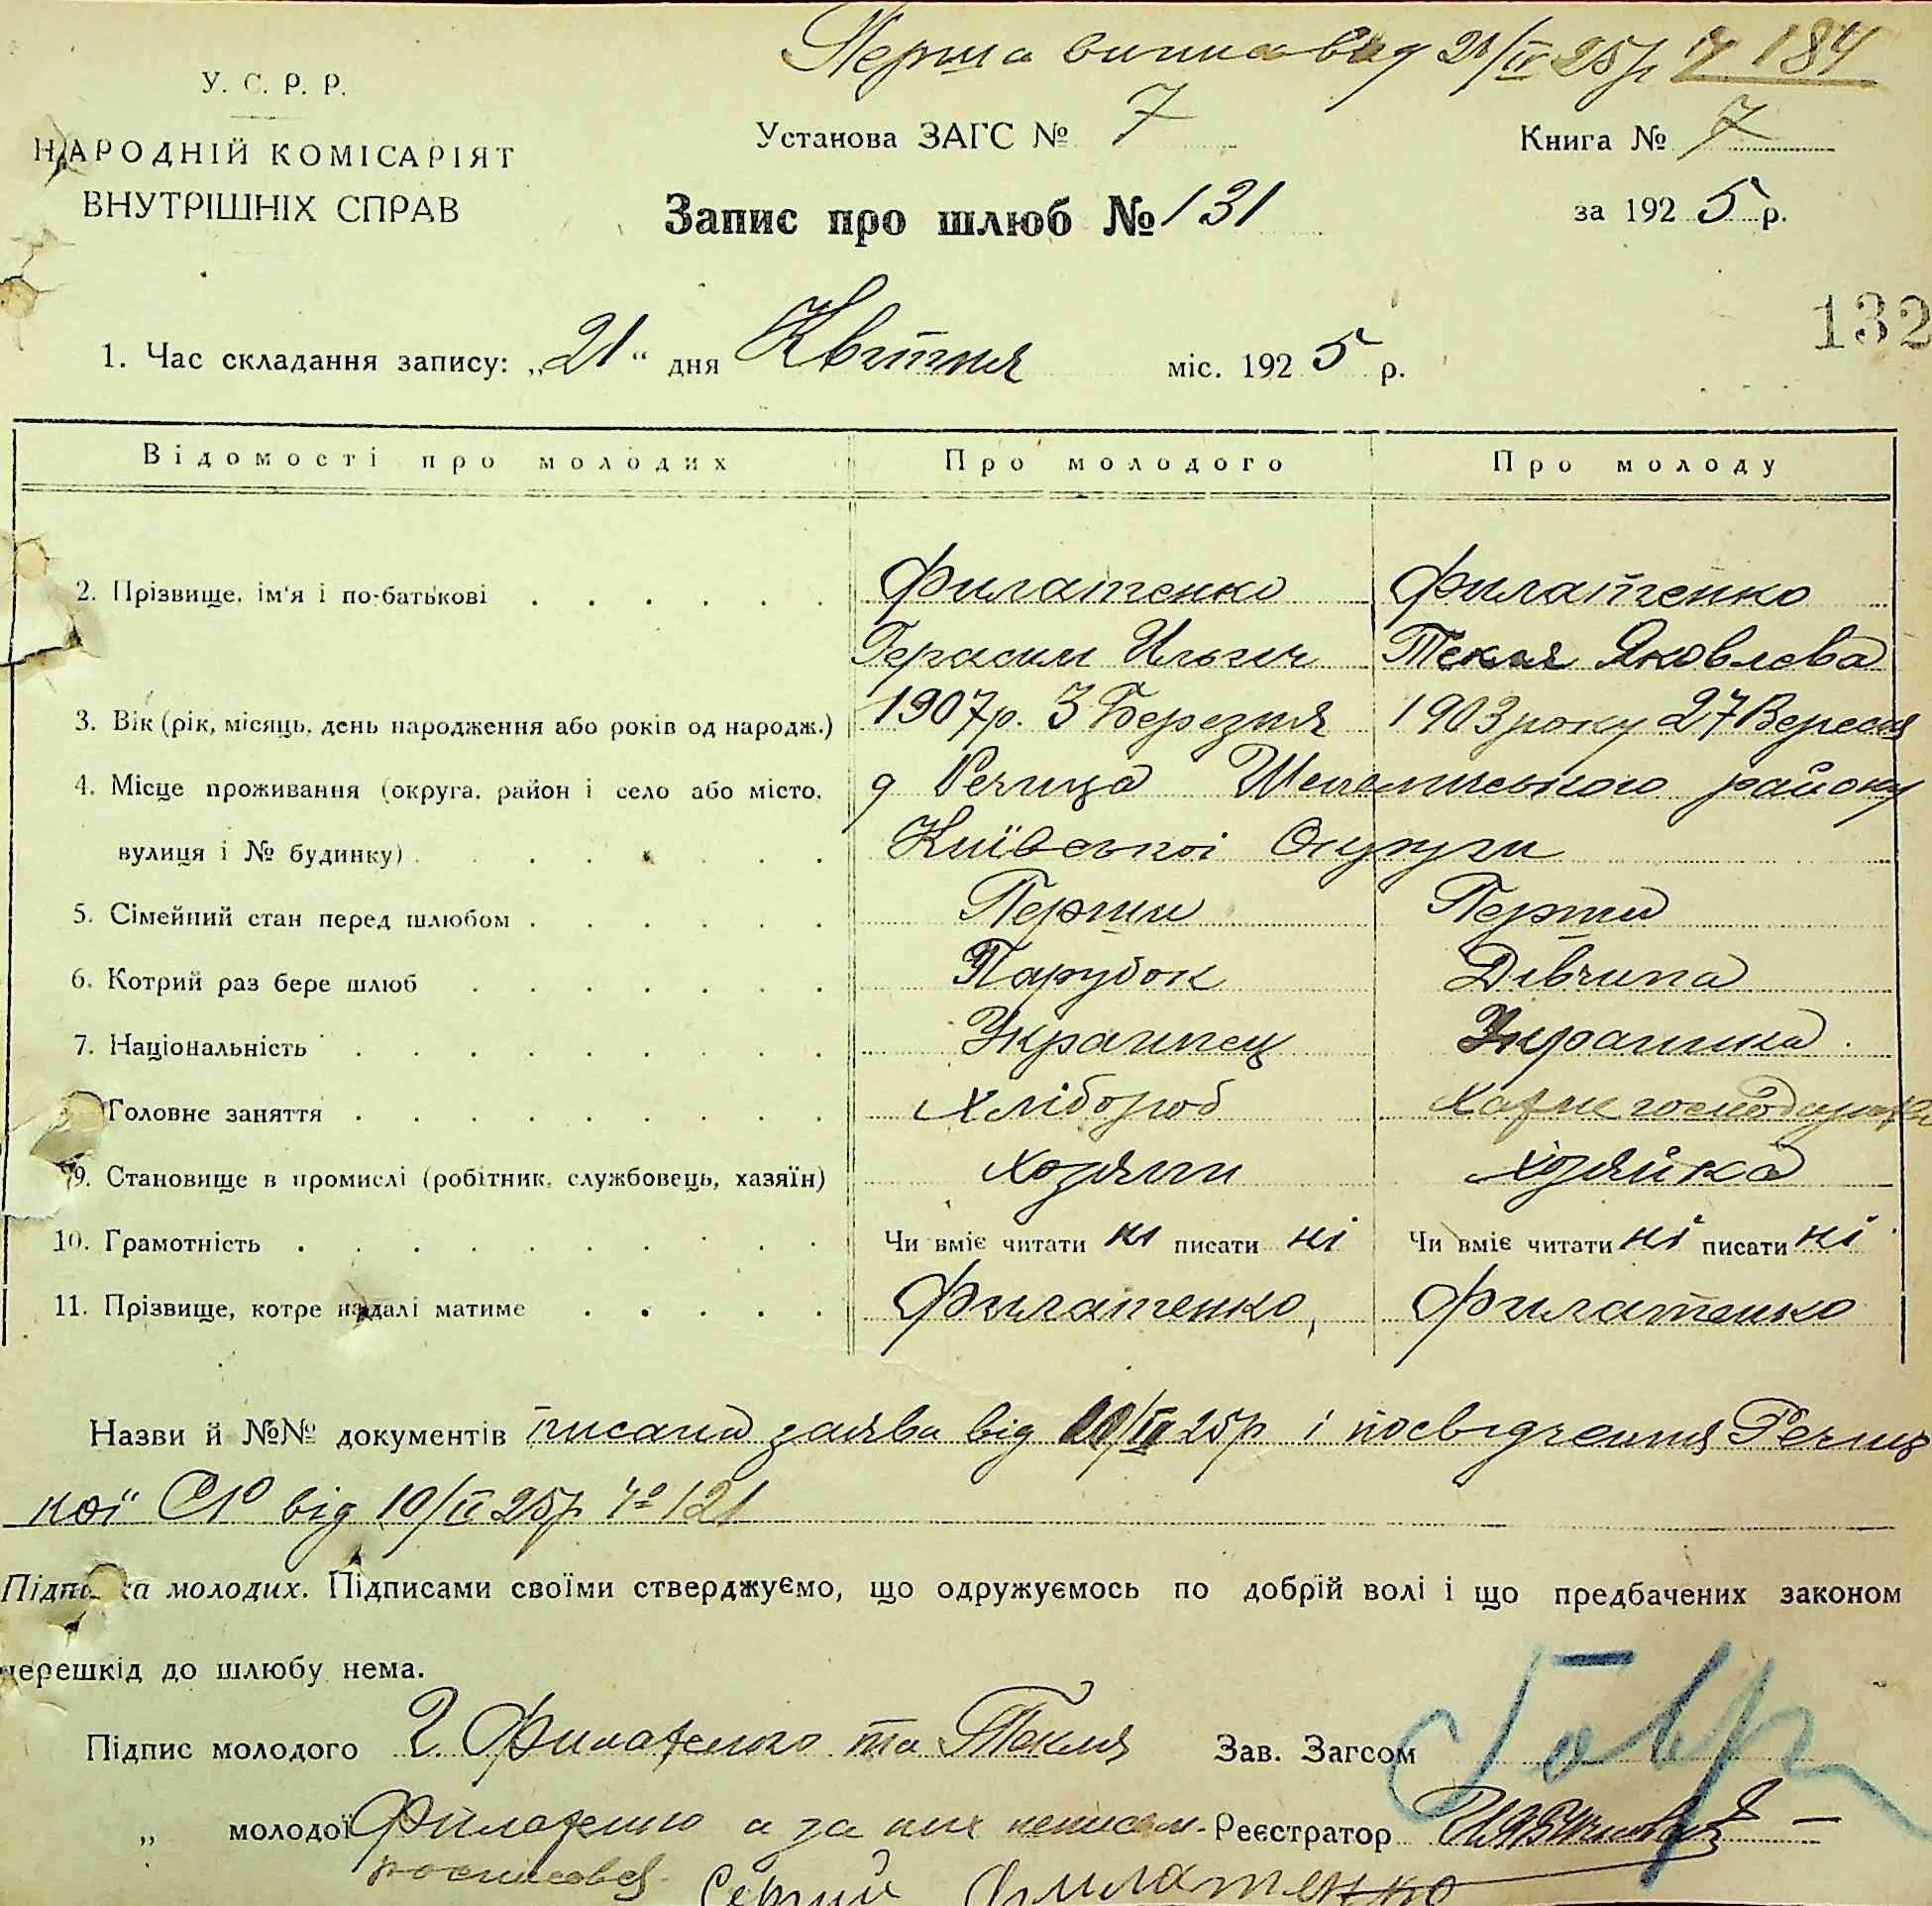 Перша виписка від 21/IV 25р № 184
У. С. Р. Р.
НАРОДНІЙ КОМІСАРІЯТ
ВНУТРІШНІХ СПРАВ
Установа ЗАГС № 7
Книга № 7
Запис про шлюб № 131
за 192 5 р.
132
1. Час складання запису: „21“ дня Квітня міс. 192 5 р.
Відомості про молодих Про молодого Про молоду
2. Прізвище, ім'я і по-батькові Филатенко Филатенко
Герасим Ильич Текля Яковлева
3. Вік (рік, місяць, день народження або років од народж.) 1907р. 3 Березня 1903 року 27 Вересня
4. Місце проживання (округа, район і село або місто, д Речица Шепелицького району
вулиця і № будинку) Київської Округи
5. Сімейний стан перед шлюбом Перши Перши
6. Котрий раз бере шлюб Парубок Дівчина
7. Національність Украинец Украинка
Головне заняття Хлібороб Хатне господарство
9. Становище в промислі (робітник, службовець, хазяїн) Хозяин Хозяйка
10. Грамотність Чи вміє читати ні писати ні Чи вміє читати ні писати ні
11. Прізвище, котре надалі матиме Филатенко, Филатенко
Назви й №№ документів писана заява від /IV 25р і посвідчення Речиц
кої від 10/II 25р № 121
Підписка молодих. Підписами своїми стверджуємо, що одружуємось по добрій волі і що предбачених законом
перешкід до шлюбу нема.
Підпис молодого Г. Филатенко та Текля Зав. Загсом
„ молодої Филатенко а за них неписьм. Реєстратор
росписовся Сергий Филатенко